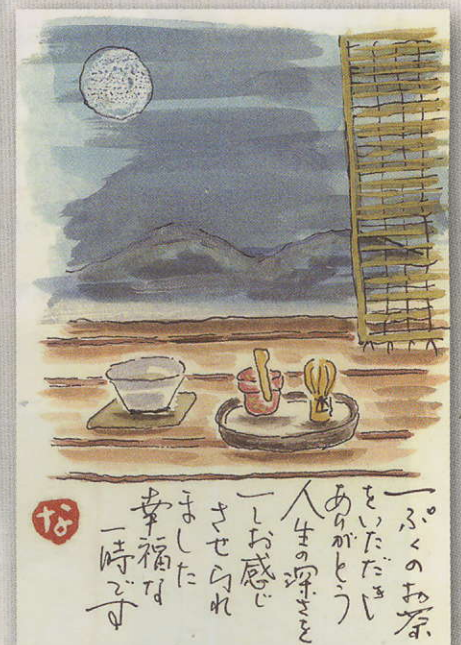 一ぷくのお茶
をいただき
ありがとう
人生の深さを
一しお感じ
させられ
ました
幸福な
一時です
な